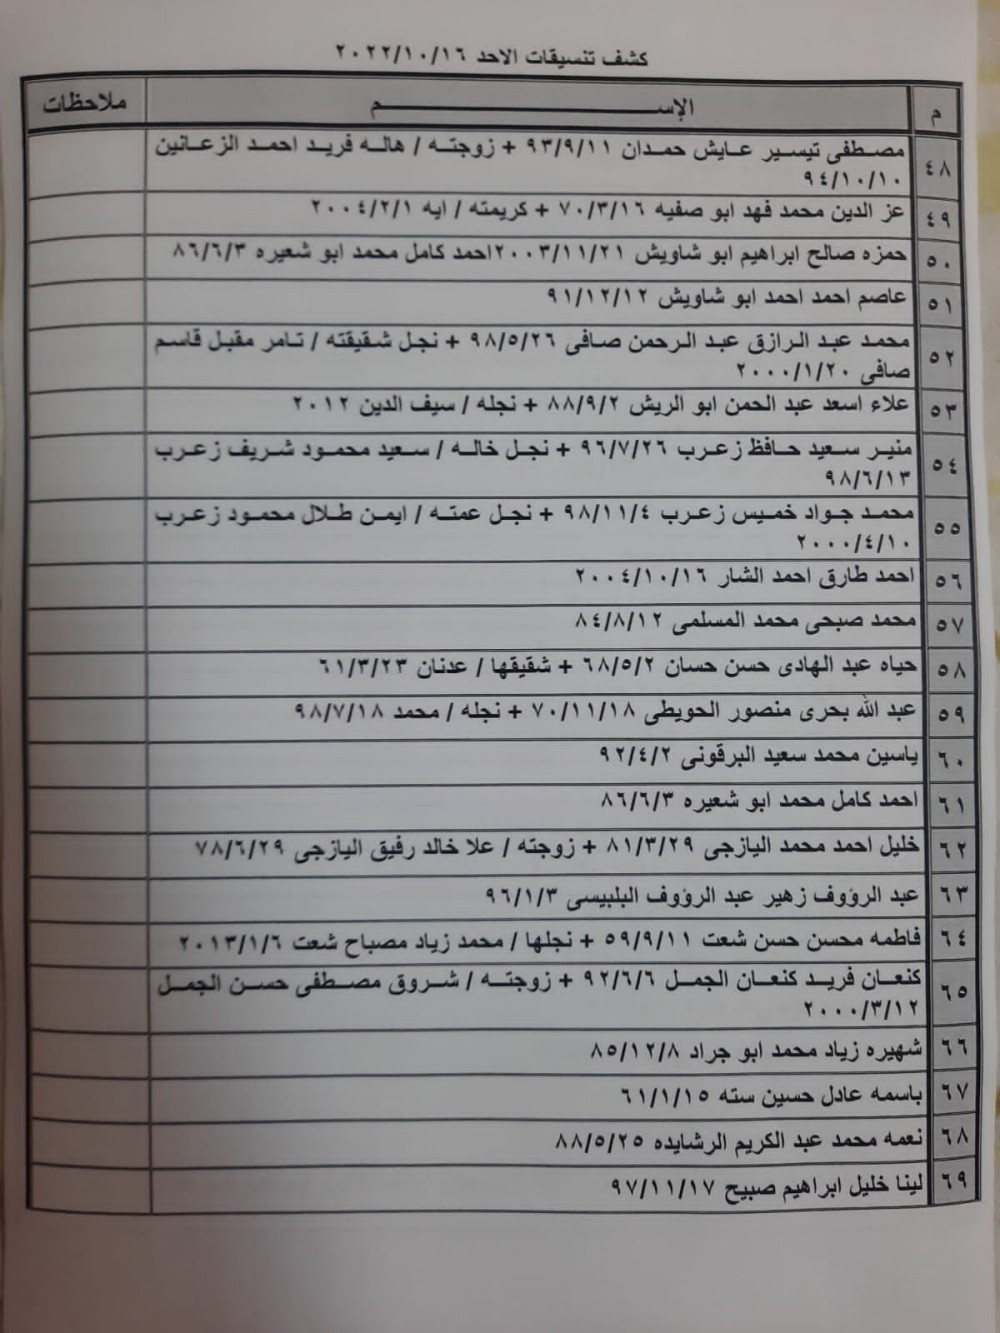 كشف تنسيقات الاحد ٢٠٢٢/١٠/١٦
م الإســـــــــم ملاحظات
٤٨ مصطفى تيسير عايش حمدان ٩٣/٩/١١ + زوجته / هاله فريد احمد الزعانين
٩٤/١٠/١٠
٤٩ عز الدين محمد فهد ابو صفيه ٧٠/٣/١٦ + كريمته / ايه ٢٠٠٤/٢/١
٥٠ حمزه صالح ابراهيم ابو شاويش ٢٠٠٣/١١/٢١احمد كامل محمد ابو شعيره ٨٦/٦/٣
٥١ عاصم احمد احمد ابو شاويش ٩١/١٢/١٢
٥٢ محمد عبد الرازق عبد الرحمن صافى ٩٨/٥/٢٦ + نجل شقيقته / تامر مقبل قاسم
صافى ٢٠٠٠/١/٢٠
٥٣ علاء اسعد عبد الحمن ابو الريش ٨٨/٩/٢ + نجله / سيف الدين ٢٠١٢
٥٤ منير سعيد حافظ زعرب ٩٦/٧/٢٦ + نجل خاله / سعيد محمود شريف زعرب
٩٨/٦/١٣
٥٥ محمد جواد خميس زعرب ٩٨/١١/٤ + نجل عمته / ايمن طلال محمود زعرب
٢٠٠٠/٤/١٠
٥٦ احمد طارق احمد الشار ٢٠٠٤/١٠/١٦
٥٧ محمد صبحى محمد المسلمى ٨٤/٨/١٢
٥٨ حياه عبد الهادى حسن حسان ٦٨/٥/٢ + شقيقها / عدنان ٦١/٣/٢٣
٥٩ عبد الله بحرى منصور الحويطى ٧٠/١١/١٨ + نجله / محمد ٩٨/٧/١٨
٦٠ ياسين محمد سعيد البرقونى ٩٢/٤/٢
٦١ احمد كامل محمد ابو شعيره ٨٦/٦/٣
٦٢ خليل احمد محمد اليازجى ٨١/٣/٢٩ + زوجته / علا خالد رفيق اليازجى ٧٨/٦/٢٩
٦٣ عبد الرؤوف زهير عبد الرؤوف البلبيسى ٩٦/١/٣
٦٤ فاطمه محسن حسن شعت ٥٩/٩/١١ + نجلها / محمد زياد مصباح شعت ٢٠١٣/١/٦
٦٥ كنعان فريد كنعان الجمل ٩٢/٦/٦ + زوجته / شروق مصطفى حسن الجمل
٢٠٠٠/٣/١٢
٦٦ شهيره زياد محمد ابو جراد ٨٥/١٢/٨
٦٧ باسمه عادل حسين سته ٦١/١/١٥
٦٨ نعمه محمد عبد الكريم الرشايده ٨٨/٥/٢٥
٦٩ لينا خليل ابراهيم صبيح ٩٧/١١/١٧